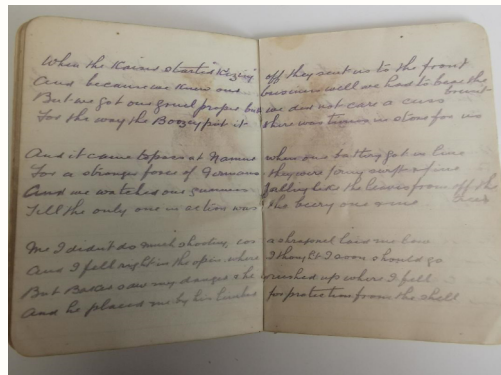 When the Kaiser started "Kizing" off they sent us to the front
And because we knew our business well we had to bear the brunt
But we got our gruel proper but we does not care a cuss
For the way the Boozey put it there was in store for us
And it came to pass at Namur when our battery got in line
For a stronger force of Germans they were
And we watched our gunners falling like the leaves from off the
Till the only one in action was the one was
Me I didn't do much shooting, cos a shrapnel laid me low
And I fell right in the open where I thought I soon should go
But saw my danger & he up where I fell
And he placed me by his for protection from the shell